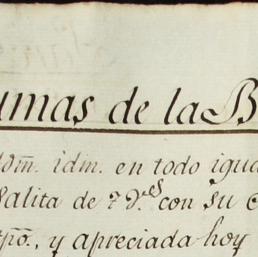 umas de la B
Ydm̃. idm̃. en todo igua
salita de 7 d.es con su c
tp̃õ., y apreciada hoy